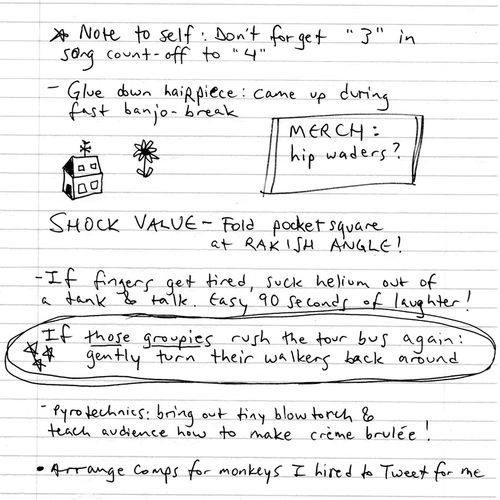 * Note to self: Don't forget "3" in
song count-off to "4"
- Glue down hairpiece: came up during
fast banjo-break
MERCH:
hip waders?
SHOCK VALUE - Fold pocket square
at RAKISH ANGLE!
- If fingers get tired, suck helium out of
a tank & talk. Easy 90 seconds of laughter!
If those groupies rush the tour bus again:
gently turn their walkers back around
- Pyrotechnics: bring out tiny blowtorch &
teach audience how to make crème brulée!
• Arrange comps for monkeys I hired to Tweet for me